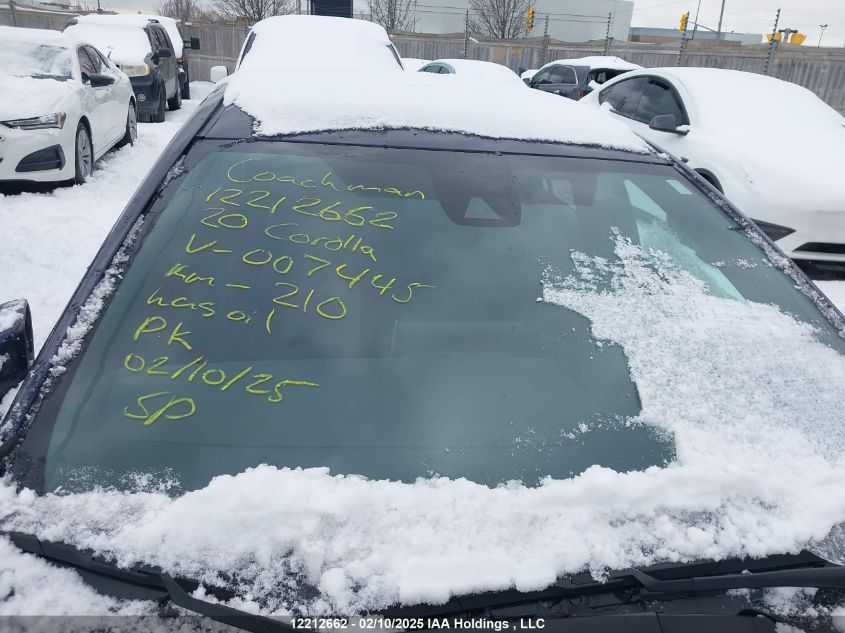 Coachman
12212662
20 Corolla
V-007445
km-210
has oil
PK
02/10/25
SP
12212662 - 02/10/2025 IAA Holdings , LLC